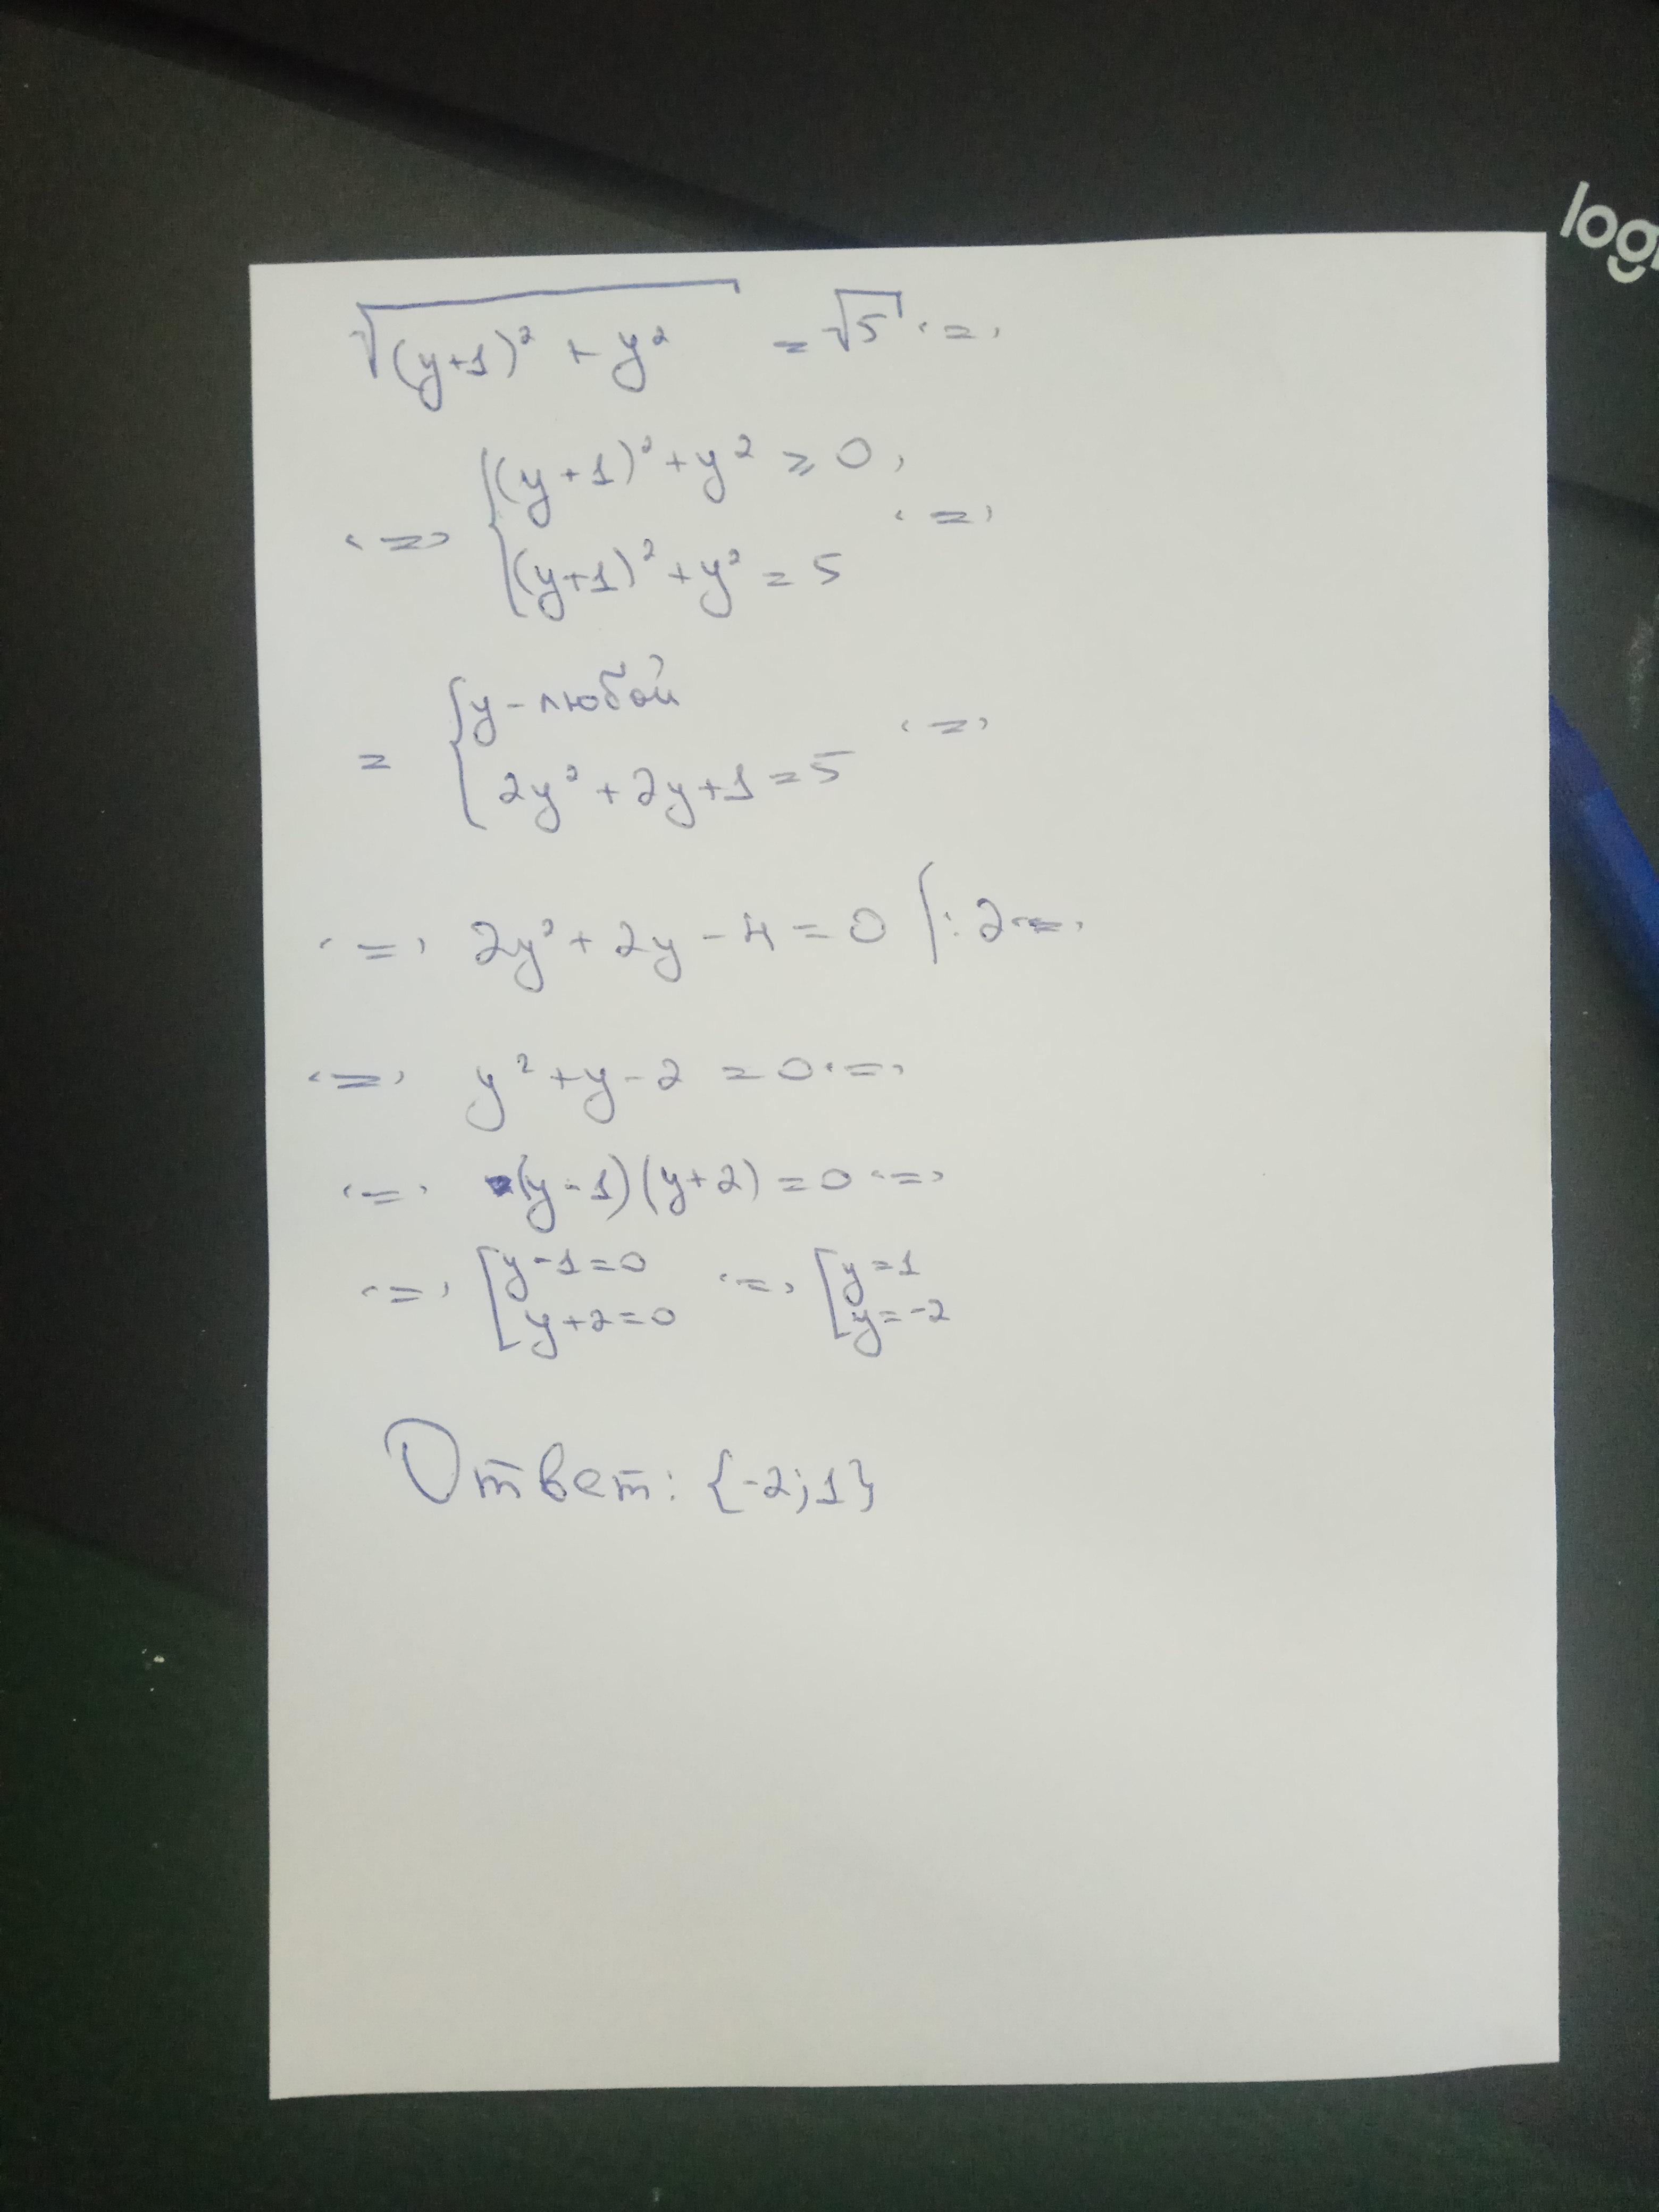 logi
√((y+1)² + y²) = √5 <=>
<=> { (y+1)² + y² ≥ 0,
(y+1)² + y² = 5 <=>
= { y - любой
2y² + 2y + 1 = 5 <=>
<=> 2y² + 2y - 4 = 0 | : 2 <=>
<=> y² + y - 2 = 0 <=>
<=> (y-1)(y+2) = 0 <=>
<=> [ y-1=0 <=> [ y=1
y+2=0 y=-2
Ответ: {-2;1}